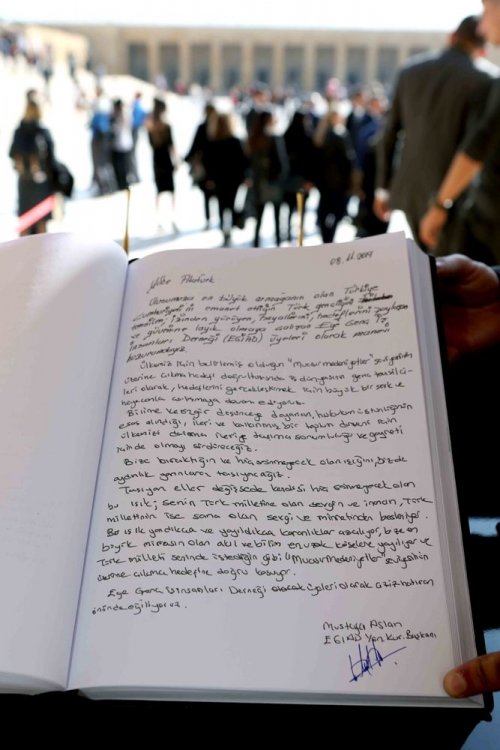 08.11.2019
Yüce Atatürk
Ulusumuza en büyük armağanın olan Türkiye
Cumhuriyeti'ni emanet ettiğin Türk gençliğini
temsilen, izinden yürüyen, hayallerini, hedeflerini paylaşan
ve güvenine layık olmaya çalışan Ege Genç İş
İnsanları Derneği (EGİAD) üyeleri olarak manevi
huzurundayız.
Ülkemiz için belirlemiş olduğun "Muasır medeniyetler" seviyesinin
üzerine çıkma hedefi doğrultusunda iş dünyasının genç temsilci-
leri olarak, hedeflerini gerçekleştirmek için büyük bir şevk ve
heyecanla çalışmaya devam ediyoruz.
Bilime ve özgür düşünceye dayanan, hukukun üstünlüğünün
esas alındığı, ileri ve kalkınmış bir toplum düzeni için
ülkemizi daima ileriye taşıma sorumluluğu ve gayreti
içinde olmayı sürdüreceğiz.
Bize bıraktığın ve hiç sönmeyecek olan ışığını, biz de
aydınlık yarınlara taşıyacağız.
Taşıyan eller değişse de kendisi hiç sönmeyecek olan
bu ışık; senin Türk milletine olan sevgin ve inancın, Türk
milletinin ise sana olan sevgi ve minnetinden besleniyor.
Bu ışık yandıkça ve yayıldıkça karanlıklar azalıyor, bize en
büyük mirasın olan akıl ve bilim en uzak köşelere yayılıyor ve
Türk milleti senin de istediğin gibi "Muasır Medeniyetler" seviyesinin
üzerine çıkma hedefine doğru koşuyor.
Ege Genç İş İnsanları Derneği olarak üyeleri olarak aziz hatıran
önünde eğiliyoruz.
Mustafa Aslan
EGİAD Yön. Kur. Başkanı